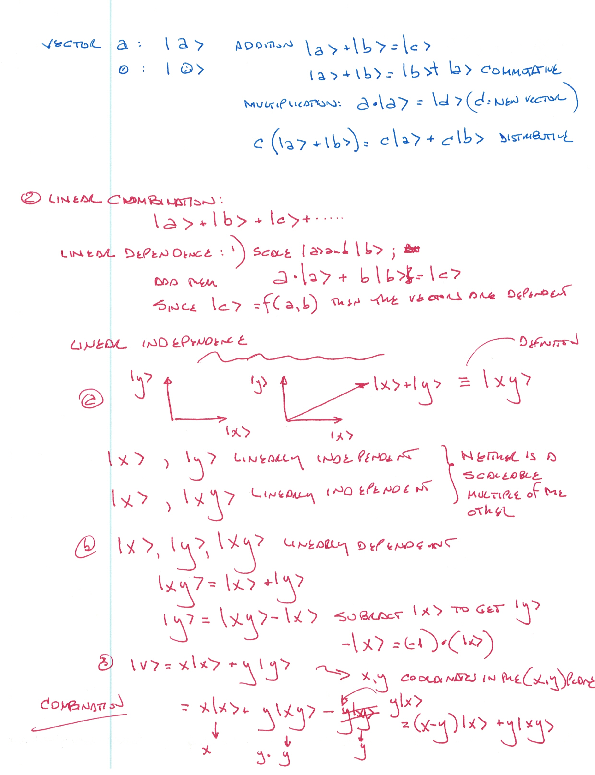 VECTOR a : |a> ADDITION |a>+|b>=|c>
0 : |0> |a>+|b>=|b>+|a> COMMUTATIVE
MULTIPLICATION: a·|a> = |d> (d: NEW VECTOR)
c(|a>+|b>)= c|a> + c|b> DISTRIBUTIVE
② LINEAR COMBINATION:
|a>+|b>+|c>+.....
LINEAR DEPENDENCE: 1) SCALE |a> |b> ;
ADD THEM a·|a> + b|b> = |c>
SINCE |c> = f(a,b) THEN THE VECTORS ARE DEPENDENT
LINEAR INDEPENDENCE DEFINITION
ⓐ |y> |x> |y> |x> |x>+|y> ≡ |xy>
|x> , |y> LINEARLY INDEPENDENT
|x> , |xy> LINEARLY INDEPENDENT
NEITHER IS A
SCALEABLE
MULTIPLE OF THE
OTHER
ⓑ |x>, |y>, |xy> LINEARLY DEPENDENT
|xy> = |x> + |y>
|y> = |xy> - |x> SUBTRACT |x> TO GET |y>
-|x> = (-1)·(|x>)
③ |v> = x|x> + y|y> → x,y COORDINATES IN THE (x,y) PLANE
COMBINATION = x|x> + y|xy> - y|x>
= (x-y)|x> + y|xy>
x y·y y